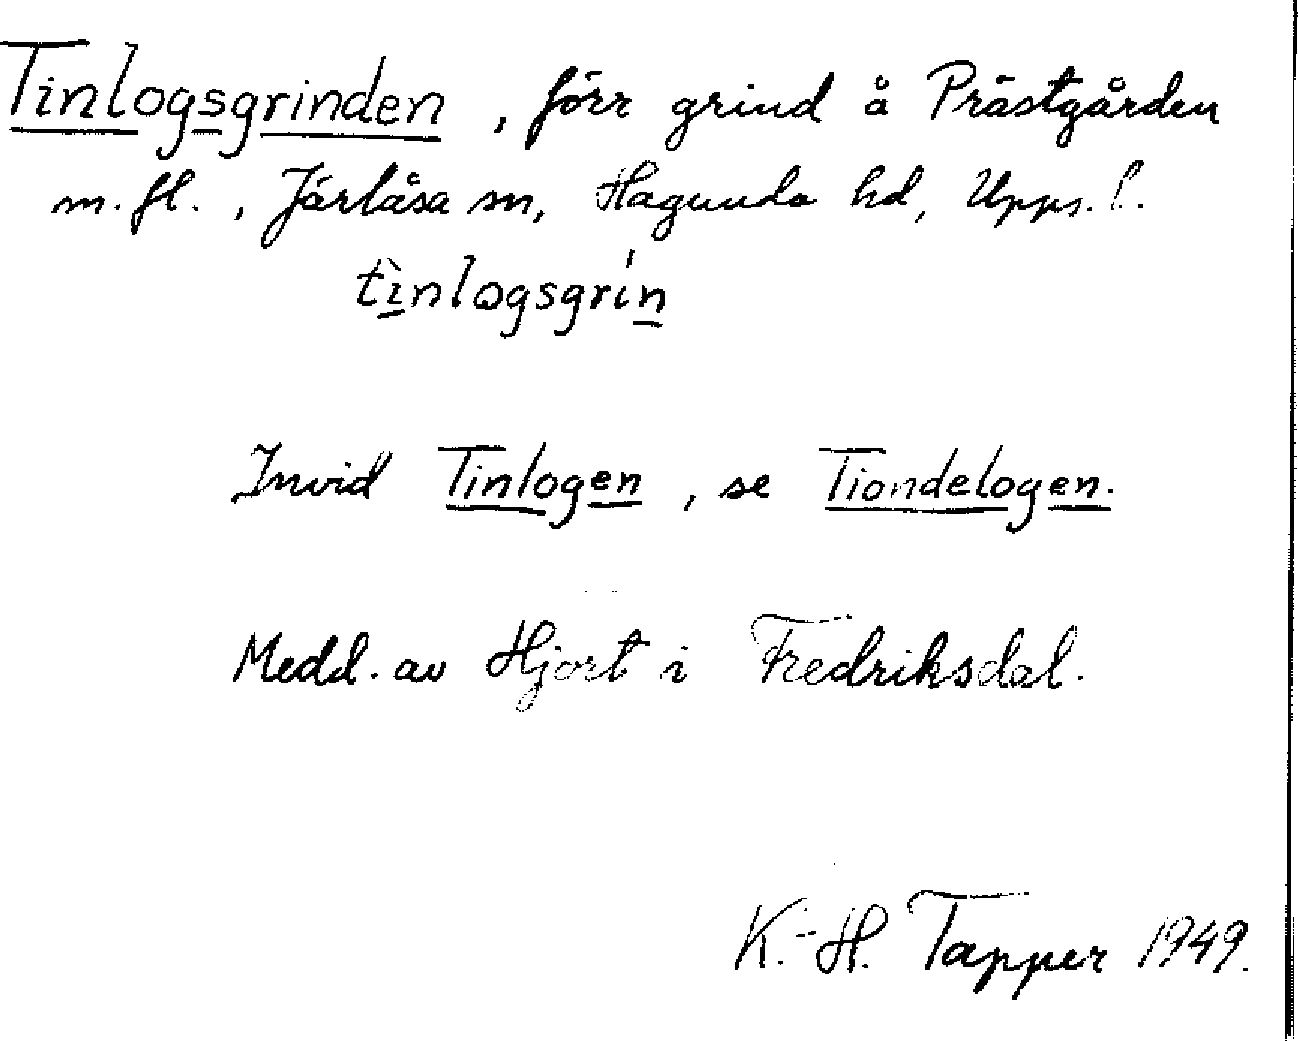 Tinlogsgrinden, förr grind å Prästgården
m.fl., Järlåsa sn, Hagunda hd, Upps. l.
tìnlogsgrín
Invid Tinlogen, se Tiondelogen.
Medd. av Hjort i Fredriksdal.
K.-H. Tapper 1949.